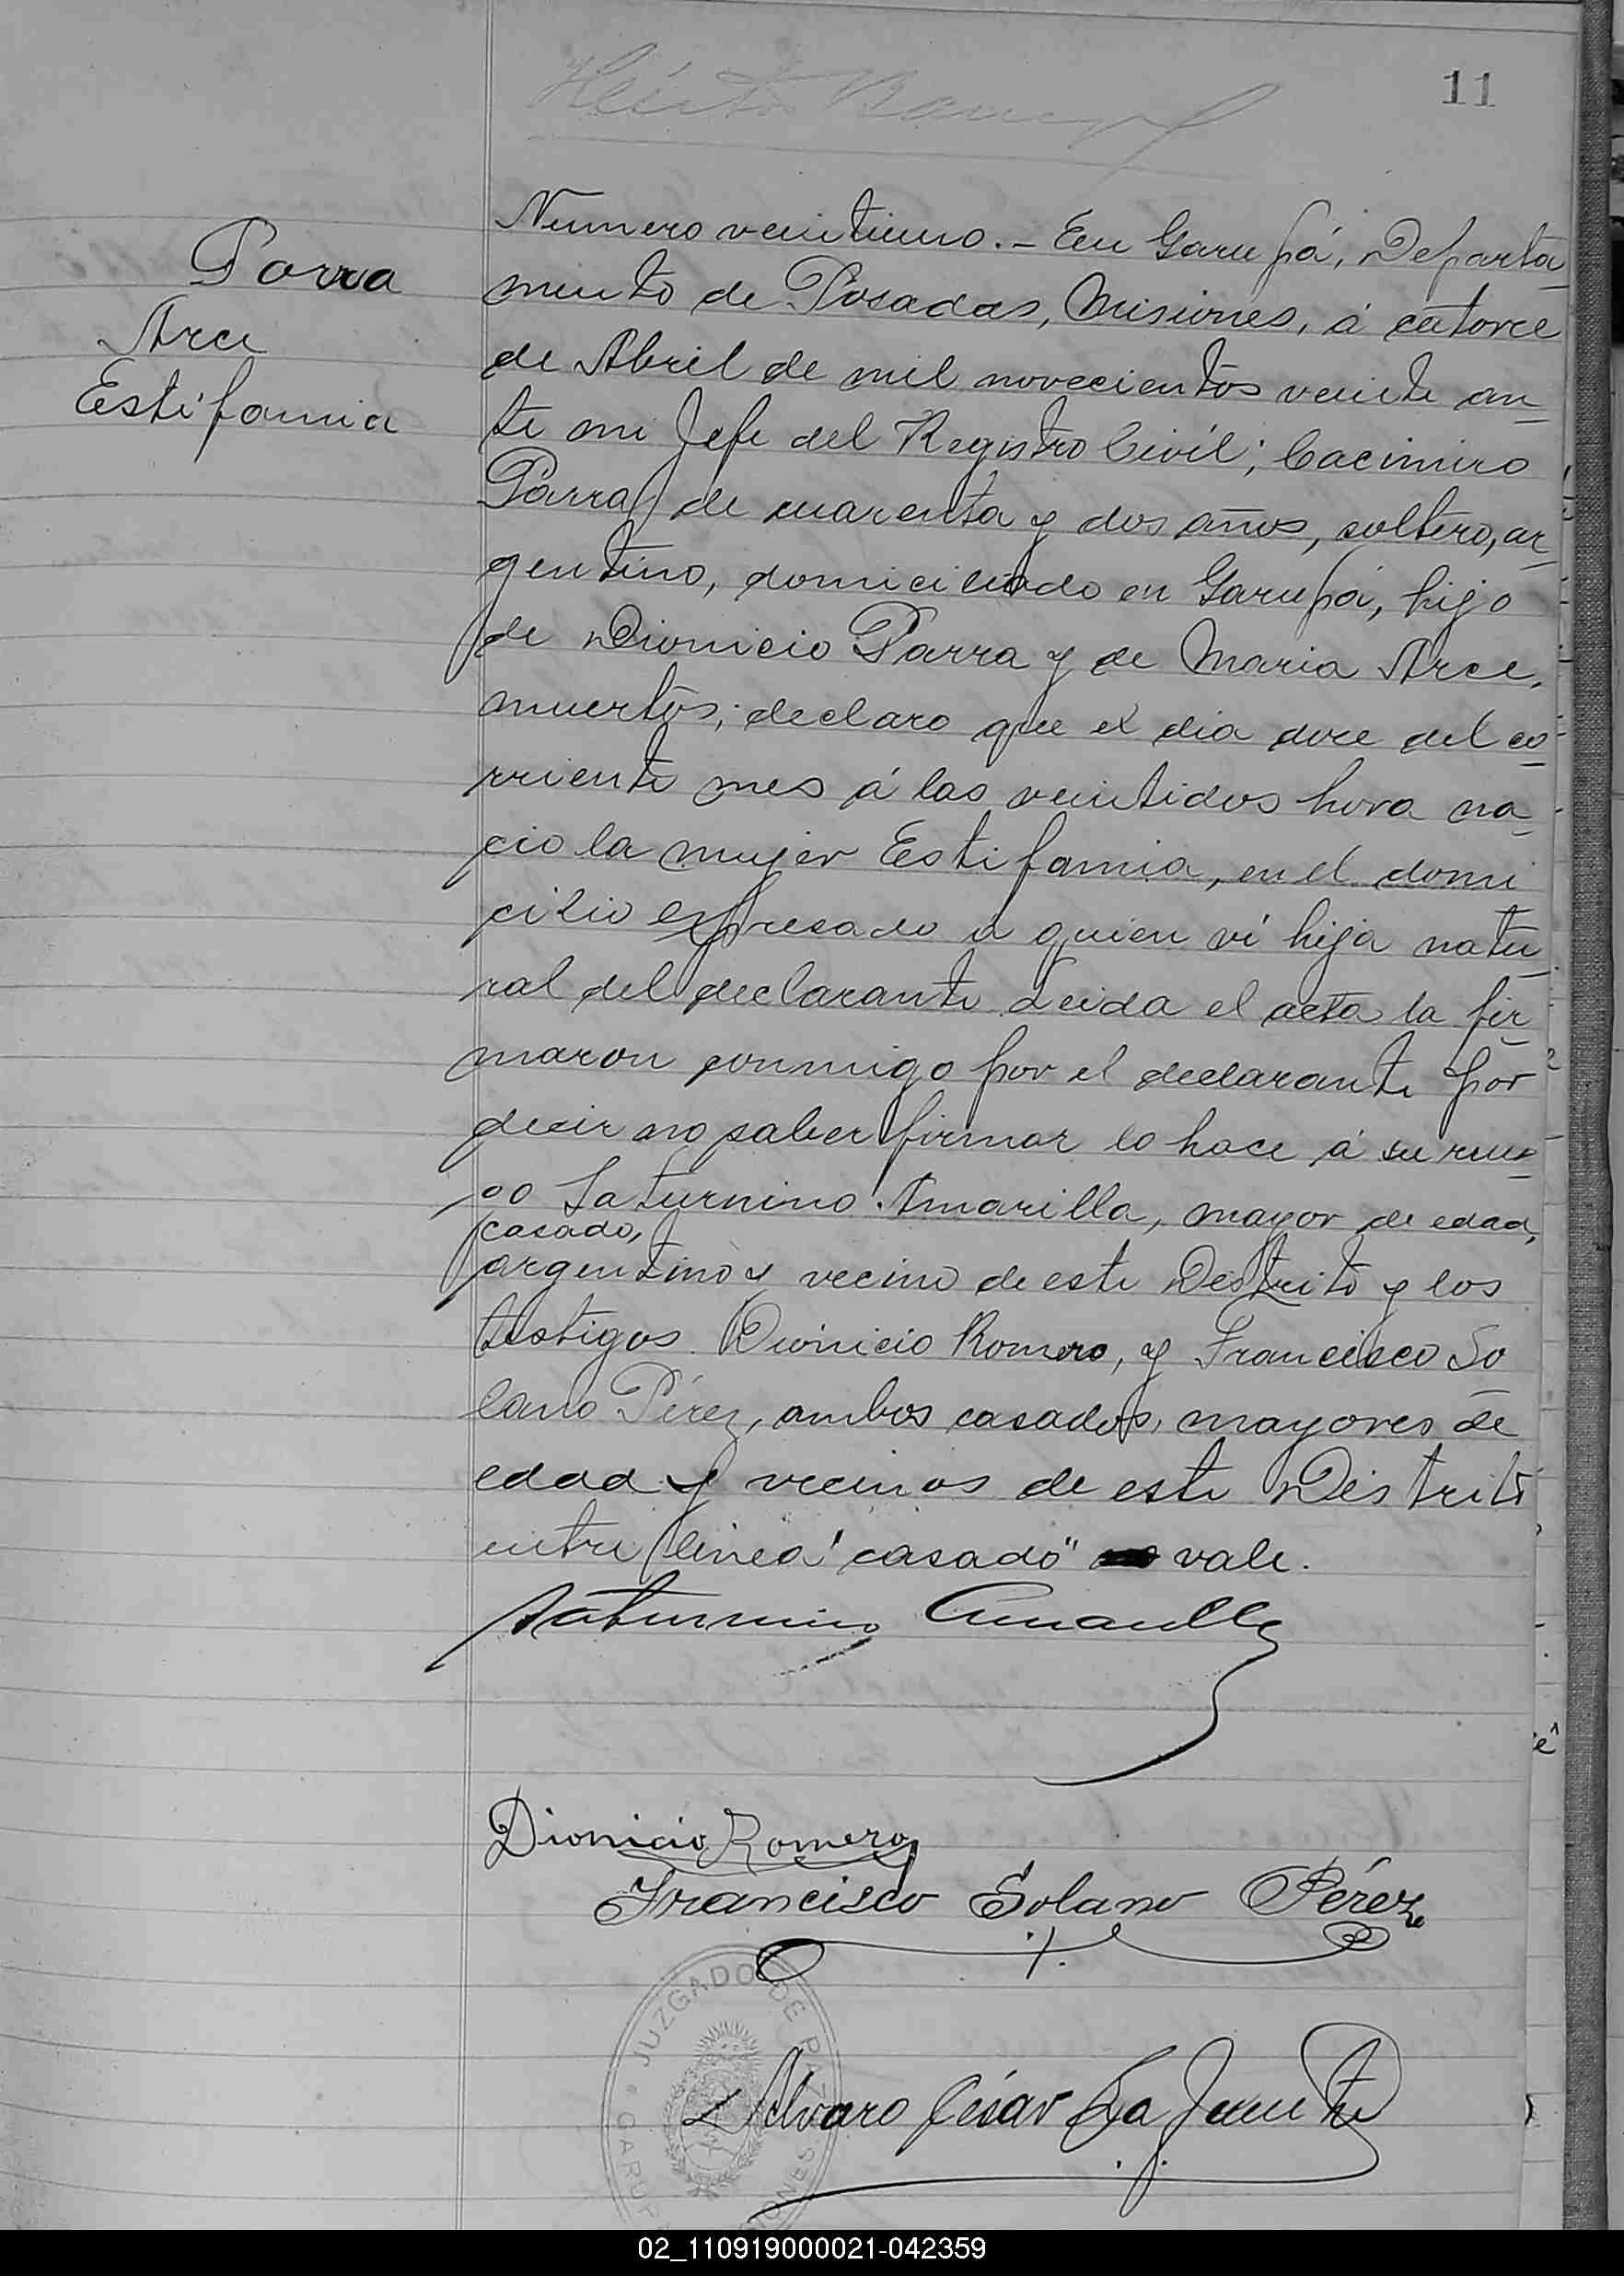 11
Parra
Arce
Estifania
Numero veintiuno.- En Garupá, Departa
mento de Posadas, Misiones, á catorce
de Abril de mil novecientos veinte an
te mi Jefe del Registro Civil; Cacimiro
Parra de cuarenta y dos años, soltero, ar
gentino, domiciliado en Garupá, hijo
de Dionicio Parra y de Maria Arce,
muertos; declaro que el dia doce del co
rriente mes á las veintidos hora na
cio la mujer Estifania, en el domi
cilio expresado a quien ví hija natu
ral del declarante Leida el acta la fir
maron conmigo por el declarante por
decir no saber firmar lo hace á su rue
go Saturnino Amarilla, mayor de edad,
casado,
argentino y vecino de este Distrito y los
testigos Dionicio Romero, y Francisco So
lano Pérez, ambos casados, mayores de
edad y vecinos de este Distrito
entre linea "casado" vale.
Saturnino Amarilla
Dionicio Romero
Francisco Solano Pérez
JUZGADO DE PAZ
GARUP
Alvaro César La Fuente
02_110919000021-042359